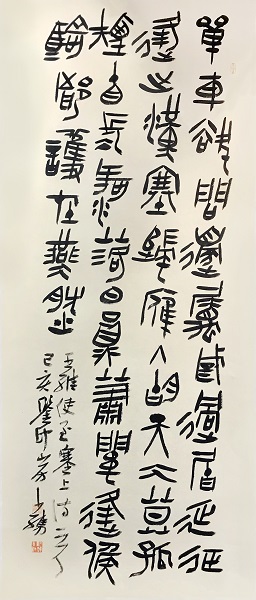 單車欲問邊屬國過居延征
蓬出漢塞歸雁入胡天大漠孤
煙直長河落日圓蕭關逢候
騎都護在燕然
王維使至塞上詩
己亥鑒印山房